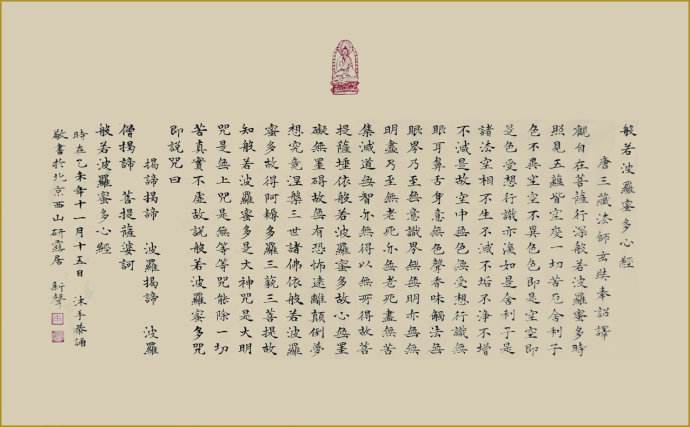 般若波羅蜜多心經
唐三藏法師玄奘奉詔譯
觀自在菩薩行深般若波羅蜜多時
照見五蘊皆空度一切苦厄舍利子
色不異空空不異色色即是空空即
是色受想行識亦復如是舍利子是
諸法空相不生不滅不垢不淨不增
不減是故空中無色無受想行識無
眼耳鼻舌身意無色聲香味觸法無
眼界乃至無意識界無無明亦無無
明盡乃至無老死亦無老死盡無苦
集滅道無智亦無得以無所得故菩
提薩埵依般若波羅蜜多故心無罣
礙無罣礙故無有恐怖遠離顛倒夢
想究竟涅槃三世諸佛依般若波羅
蜜多故得阿耨多羅三藐三菩提故
知般若波羅蜜多是大神咒是大明
咒是無上咒是無等等咒能除一切
苦真實不虛故説般若波羅蜜多咒
即説咒曰
揭諦揭諦 波羅揭諦 波羅
僧揭諦 菩提薩婆訶
般若波羅蜜多心經
時在乙未年十一月十五日 沐手恭誦
敬書於北京西山研露居